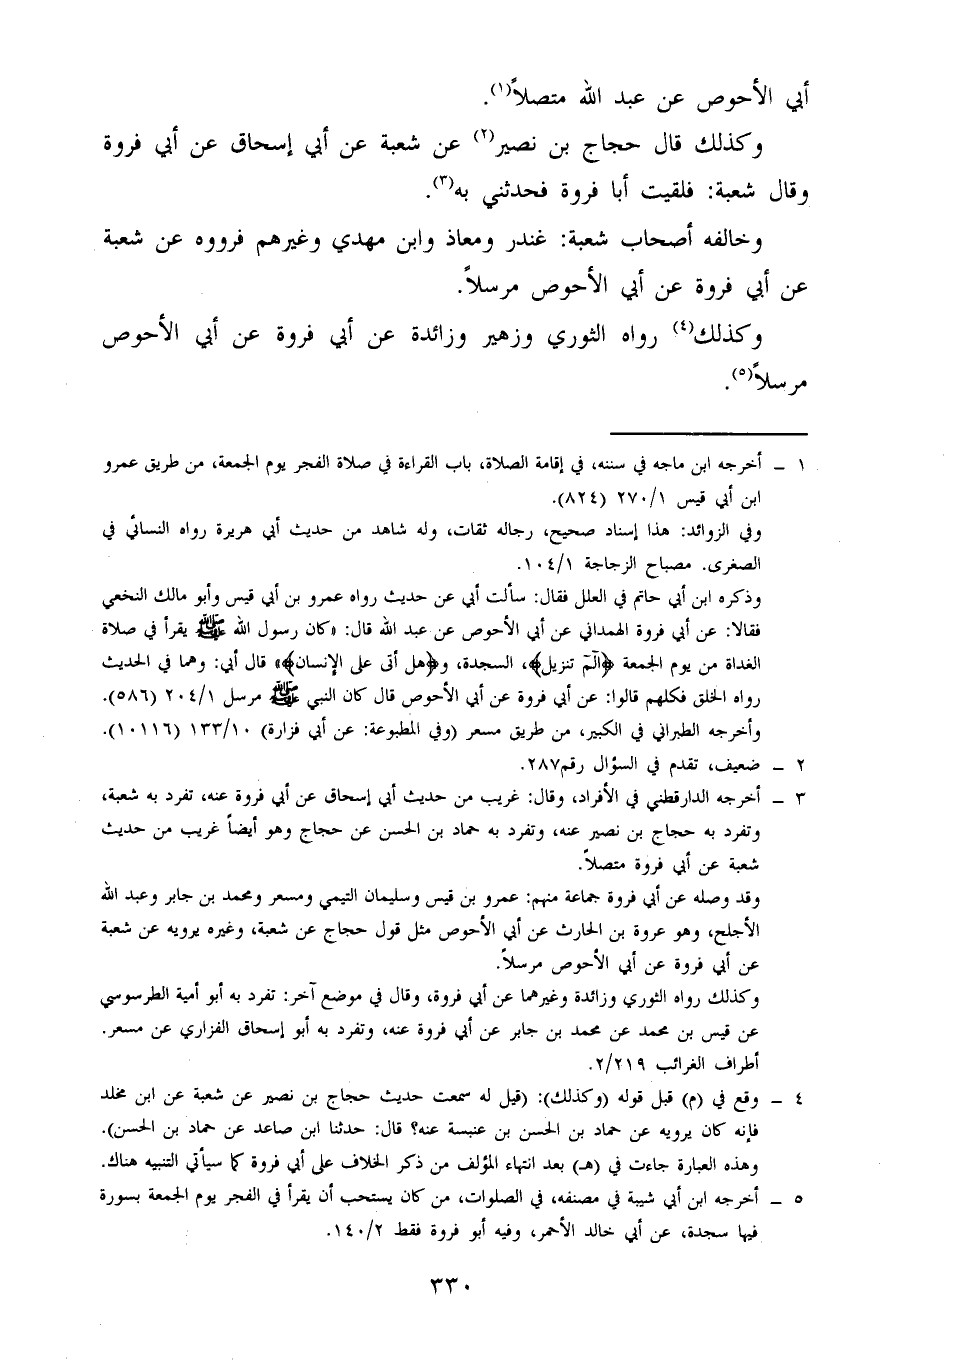 أبي الأحوص عن عبد الله متصلاً(١).
وكذلك قال حجاج بن نصير(٢) عن شعبة عن أبي إسحاق عن أبي فروة
وقال شعبة: فلقيت أبا فروة فحدثني به(٣).
وخالفه أصحاب شعبة: غندر ومعاذ وابن مهدي وغيرهم فرووه عن شعبة
عن أبي فروة عن أبي الأحوص مرسلاً.
وكذلك(٤) رواه الثوري وزهير وزائدة عن أبي فروة عن أبي الأحوص
مرسلاً(٥).
١ ــ أخرجه ابن ماجه في سننه، في إقامة الصلاة، باب القراءة في صلاة الفجر يوم الجمعة، من طريق عمرو
ابن أبي قيس ٢٧٠/١ (٨٢٤).
وفي الزوائد: هذا إسناد صحيح، رجاله ثقات، وله شاهد من حديث أبي هريرة رواه النسائي في
الصغرى. مصباح الزجاجة ١٠٤/١.
وذكره ابن أبي حاتم في العلل فقال: سألت أبي عن حديث رواه عمرو بن أبي قيس وأبو مالك النخعي
فقالا: عن أبي فروة الهمداني عن أبي الأحوص عن عبد الله قال: «كان رسول الله ﷺ يقرأ في صلاة
الغداة من يوم الجمعة ﴿الٓمٓ تنزيل﴾، السجدة، و﴿هل أتى على الإنسان﴾» قال أبي: وهما في الحديث
رواه الخلق فكلهم قالوا: عن أبي فروة عن أبي الأحوص قال كان النبي ﷺ مرسل ٢٠٤/١ (٥٨٦).
وأخرجه الطبراني في الكبير، من طريق مسعر (وفي المطبوعة: عن أبي فزارة) ١٣٣/١٠ (١٠١١٦).
٢ ــ ضعيف، تقدم في السؤال رقم٢٨٧.
٣ ــ أخرجه الدارقطني في الأفراد، وقال: غريب من حديث أبي إسحاق عن أبي فروة عنه، تفرد به شعبة،
وتفرد به حجاج بن نصير عنه، وتفرد به حماد بن الحسن عن حجاج وهو أيضاً غريب من حديث
شعبة عن أبي فروة متصلاً.
وقد وصله عن أبي فروة جماعة منهم: عمرو بن قيس وسليمان التيمي ومسعر ومحمد بن جابر وعبد الله
الأجلح، وهو عروة بن الحارث عن أبي الأحوص مثل قول حجاج عن شعبة، وغيره يرويه عن شعبة
عن أبي فروة عن أبي الأحوص مرسلاً.
وكذلك رواه الثوري وزائدة وغيرهما عن أبي فروة، وقال في موضع آخر: تفرد به أبو أمية الطرسوسي
عن قيس بن محمد عن محمد بن جابر عن أبي فروة عنه، وتفرد به أبو إسحاق الفزاري عن مسعر.
أطراف الغرائب ٢/٢١٩.
٤ ــ وقع في (م) قبل قوله (وكذلك): (قيل له سمعت حديث حجاج بن نصير عن شعبة عن ابن مخلد
فإنه كان يرويه عن حماد بن الحسن بن عنبسة عنه؟ قال: حدثنا ابن صاعد عن حماد بن الحسن).
وهذه العبارة جاءت في (هـ) بعد انتهاء المؤلف من ذكر الخلاف على أبي فروة كما سيأتي التنبيه هناك.
٥ ــ أخرجه ابن أبي شيبة في مصنفه، في الصلوات، من كان يستحب أن يقرأ في الفجر يوم الجمعة بسورة
فيها سجدة، عن أبي خالد الأحمر، وفيه أبو فروة فقط ١٤٠/٢.
٣٣٠